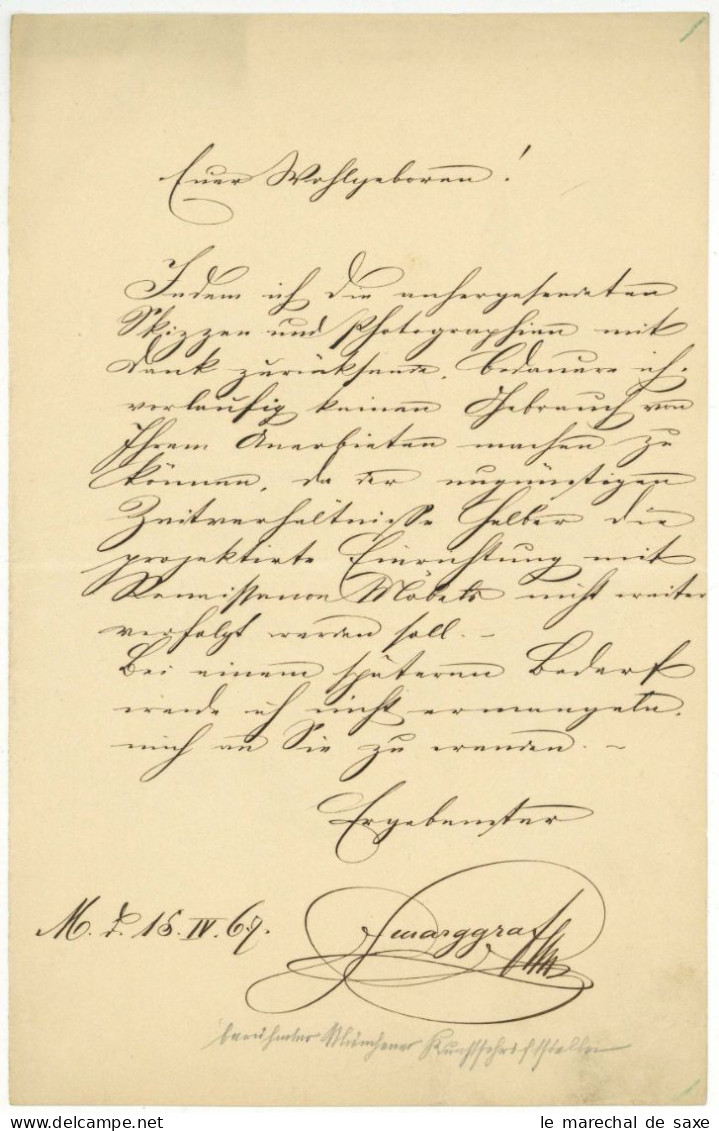 Euer Wohlgeboren!
Indem ich die anhergesendeten
Skizzen und Photographien mit
Dank zurücksende, bedauere ich,
vorläufig keinen Gebrauch von
Ihrem Anerbieten machen zu
können, da der ungünstigen
Zeitverhältnisse halber die
projektirte Einrichtung mit
Renaissance Möbels nicht weiter
verfolgt werden soll. –
Bei einem späteren Bedarf
werde ich nicht ermangeln,
mich an Sie zu wenden. –
Ergebenster
M. d. 15. IV. 67.
Marggraff
berühmter Münchener Kunstschriftsteller
le marechal de saxe